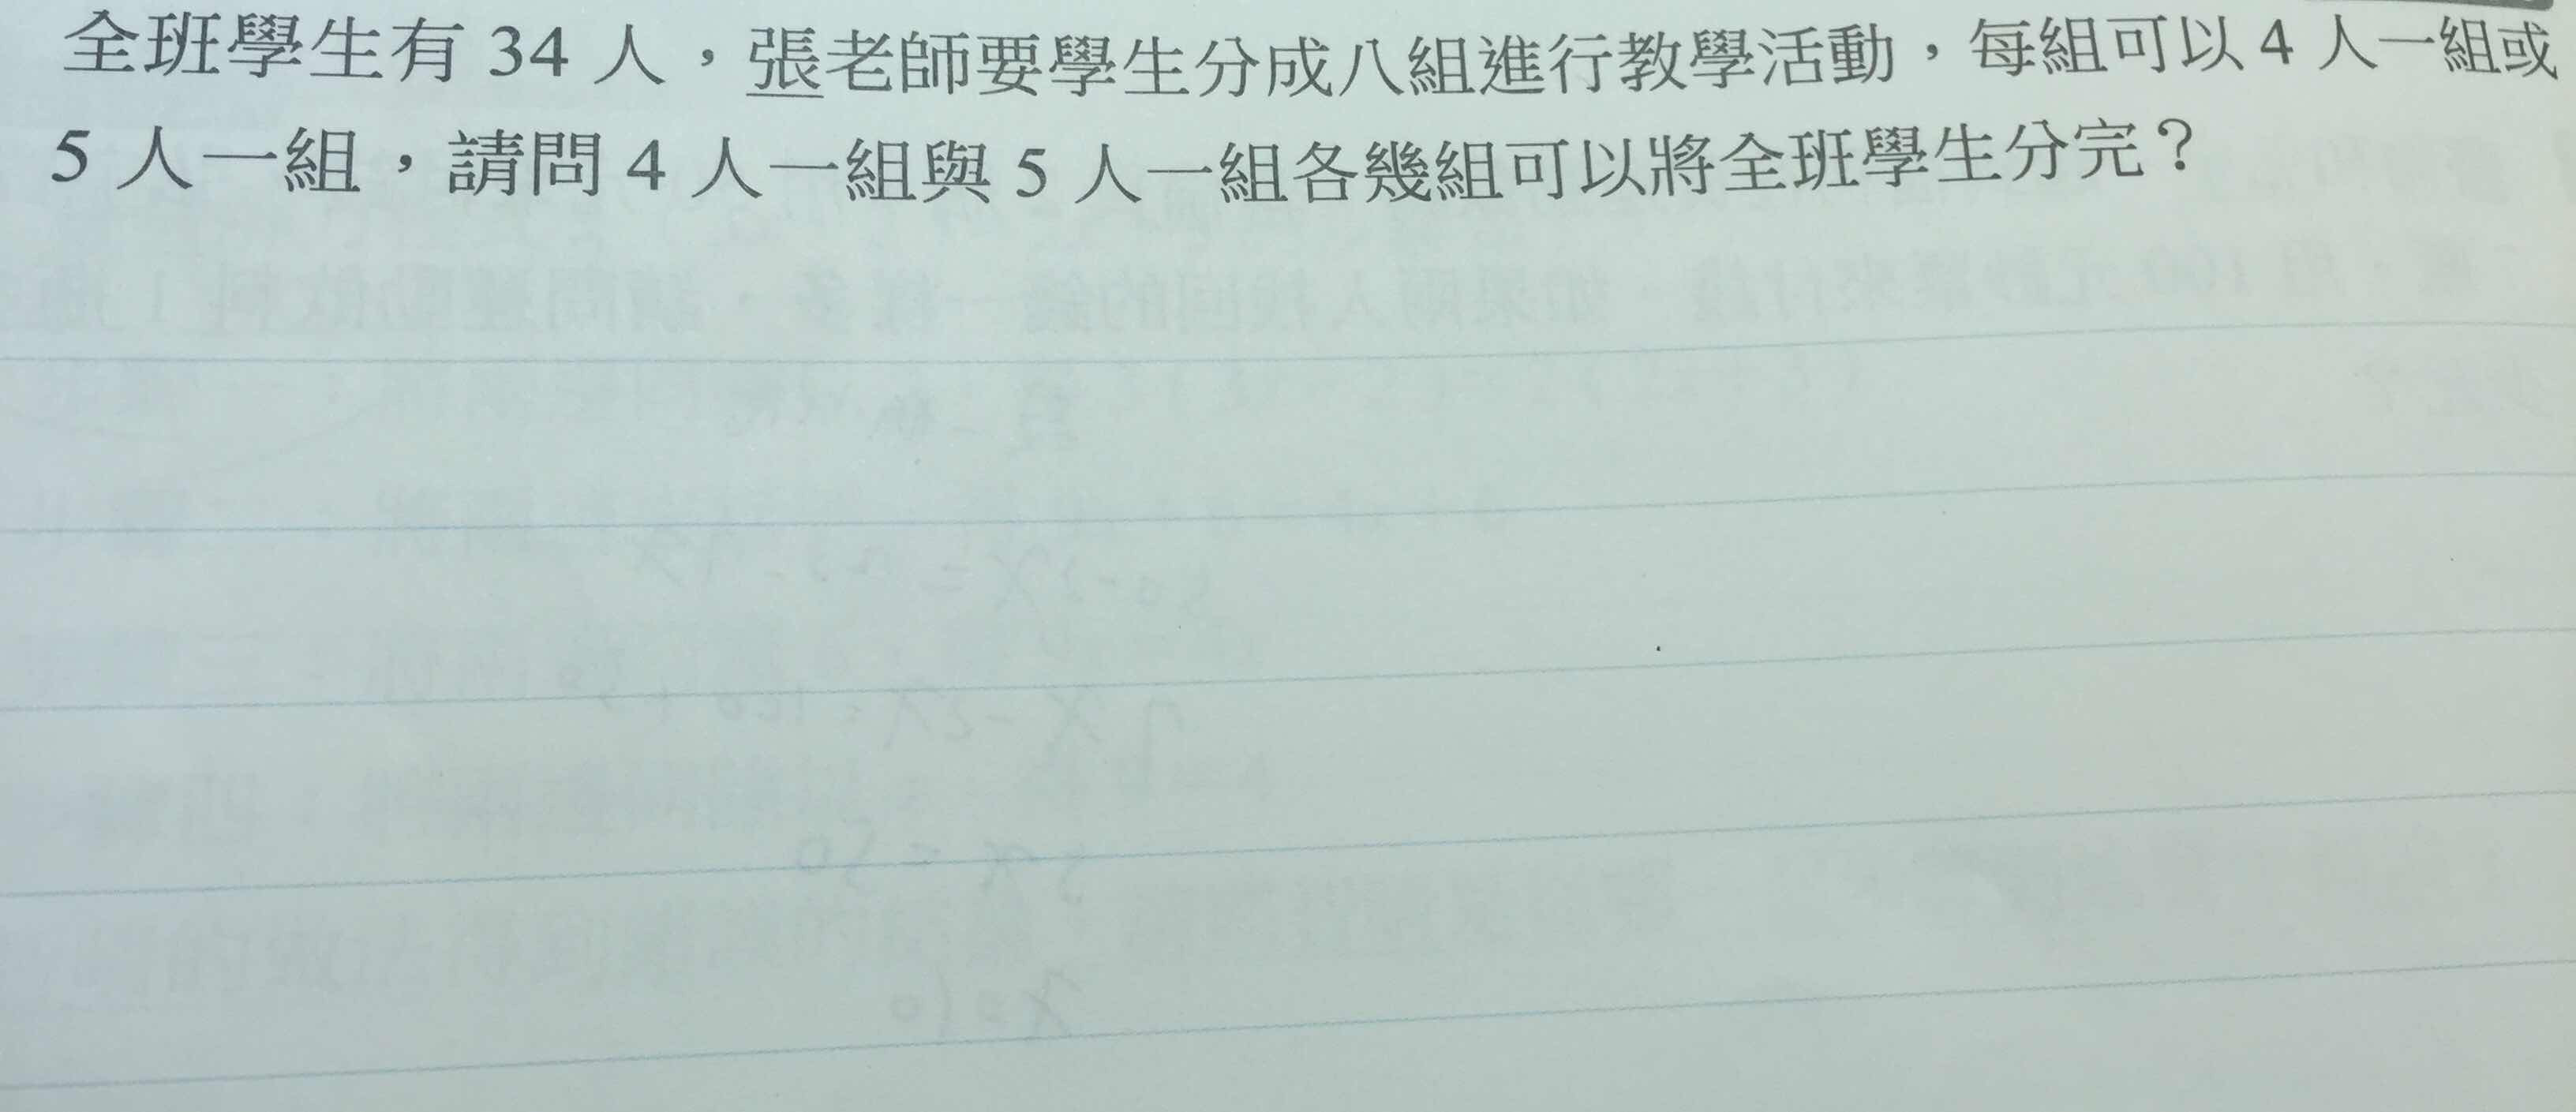 全班學生有 34 人，張老師要學生分成八組進行教學活動，每組可以 4 人一組或
5 人一組，請問 4 人一組與 5 人一組各幾組可以將全班學生分完？